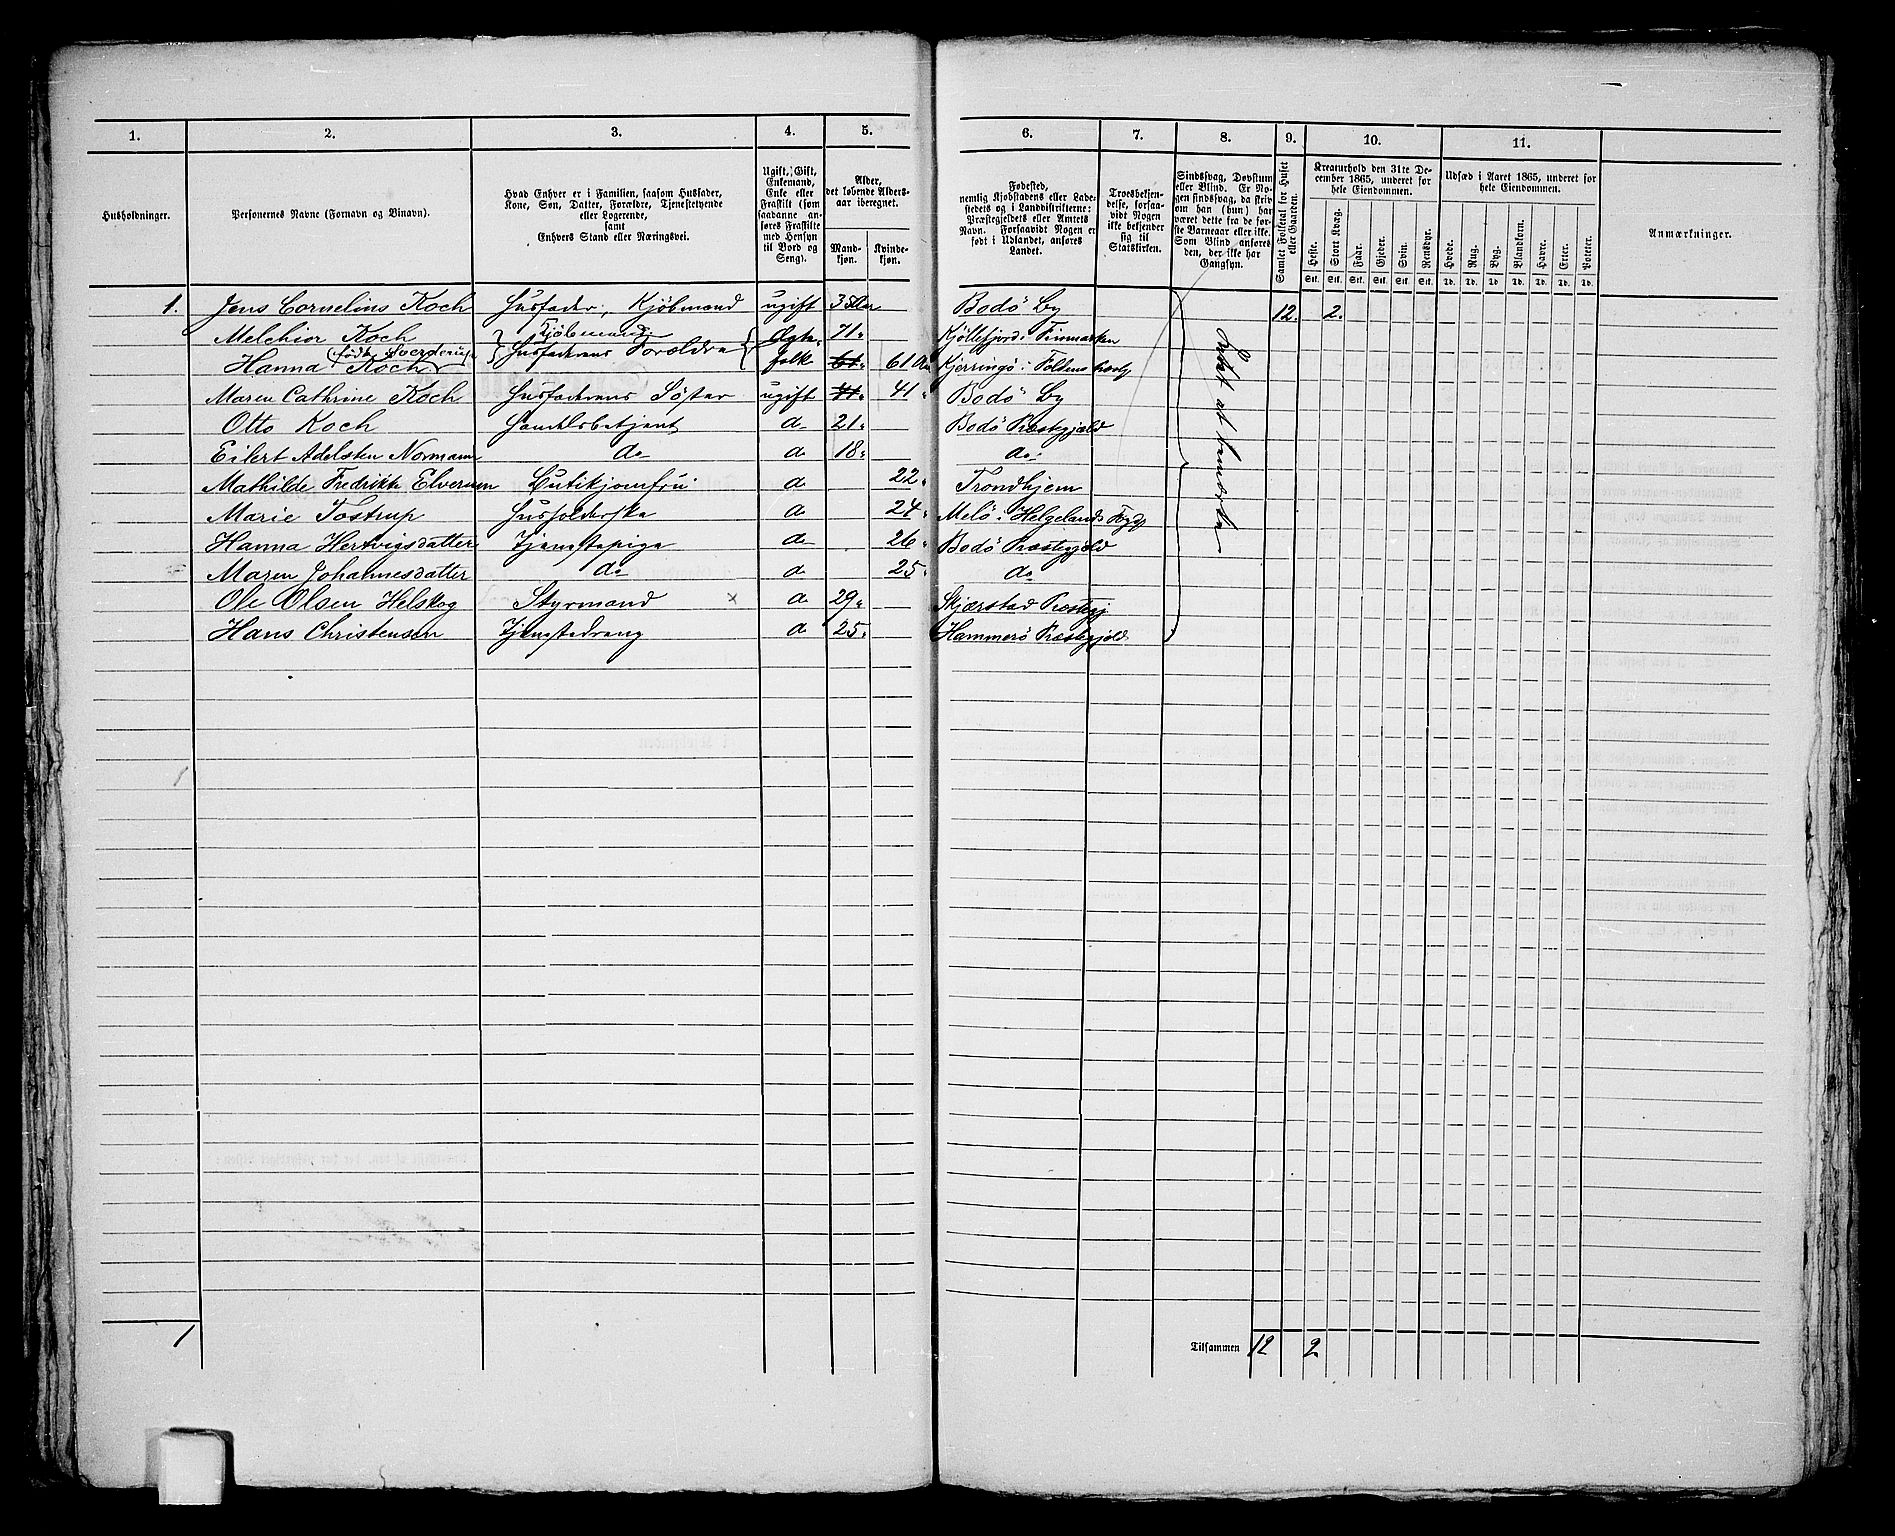 1. 2. 3. 4. 5. 6. 7. 8. 9. 10. 11.
Husholdninger.
Personernes Navne (Fornavn og Binavn).
Hvad Enhver er i Familien, saasom Husfader, Kone, Søn, Datter, Forældre, Tjenestetyende eller Logerende, samt Enhvers Stand eller Næringsvei.
Ugift, Gift, Enkemand, Enke eller Fraskilt (som saadanne anføres Fraskilte med Hensyn til Bord og Seng).
Alder, det løbende Alders-aar iberegnet.
Mand-kjøn. Kvinde-kjøn.
Fødested, nemlig Kjøbstadens eller Ladestedets og i Landdistrikterne: Præstegjeldets eller Amtets Navn. Forsaavidt Nogen er født i Udlandet, anføres Landet.
Troesbekjendelse, forsaavidt Nogen ikke bekjender sig til Statskirken.
Sindssvag, Døvstum eller Blind. Er Nogen sindssvag, da skrives om han (hun) har været dette fra de første Barneaar eller ikke. Som Blind anføres den, der ikke har Gangsyn.
Samlet Folketal for Huset eller Gaarden.
Kreaturhold den 31te December 1865, underet for hele Eiendommen.
Heste. Stort Kvæg. Faar. Gjeder. Svin. Rensdyr.
Stk. Stk. Stk. Stk. Stk. Stk.
Udsæd i Aaret 1865, underet for hele Eiendommen.
Hvede. Rug. Byg. Blandkorn. Havre. Erter. Poteter.
Td. Td. Td. Td. Td. Td. Td.
Anmærkninger.
1. Jens Cornelius Koch Husfader, Kjøbmand ugift 35 Aar Bodö By 12. 2.
Melchior Koch Kjöbmand Ægte- 71 " Kjöllefjord i Finmarken
(født Sverdrup)
Hanna Koch Husfaderens Forældre folk 61 61 Aar Kjerringö i Foldens
Maren Cathrine Koch Husfaderens Söster ugift 41 41 " Bodö By
Otto Koch Handelsbetjent do 21 " Bodö Præstegjæld
Eilert Adelsten Normann do do 18 " do
Mathilde Fredrikke Elverum Butikjomfru do 22 " Trondhjem
Marie Tostrup Husholderske do 24 " Melö i Helgelands Fogd
Hanna Hertvigsdatter Tjenestepige do 26 " Bodö Præstegjeld
Maren Johannesdatter do do 25 " do
Ole Olsen Helskog Styrmand x do 29 " Skjærstad Præstegj
Hans Christensen Tjenestedreng do 25 " Hammerö Præstegjeld
Intet at bemærke
1
Tilsammen 12 2